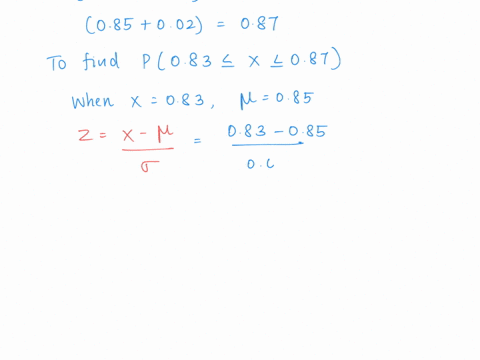 (0.85 + 0.02) = 0.87
To find P(0.83 ≤ x ≤ 0.87)
When x = 0.83, μ = 0.85
z = x - μ / σ = 0.83 - 0.85 / 0.0